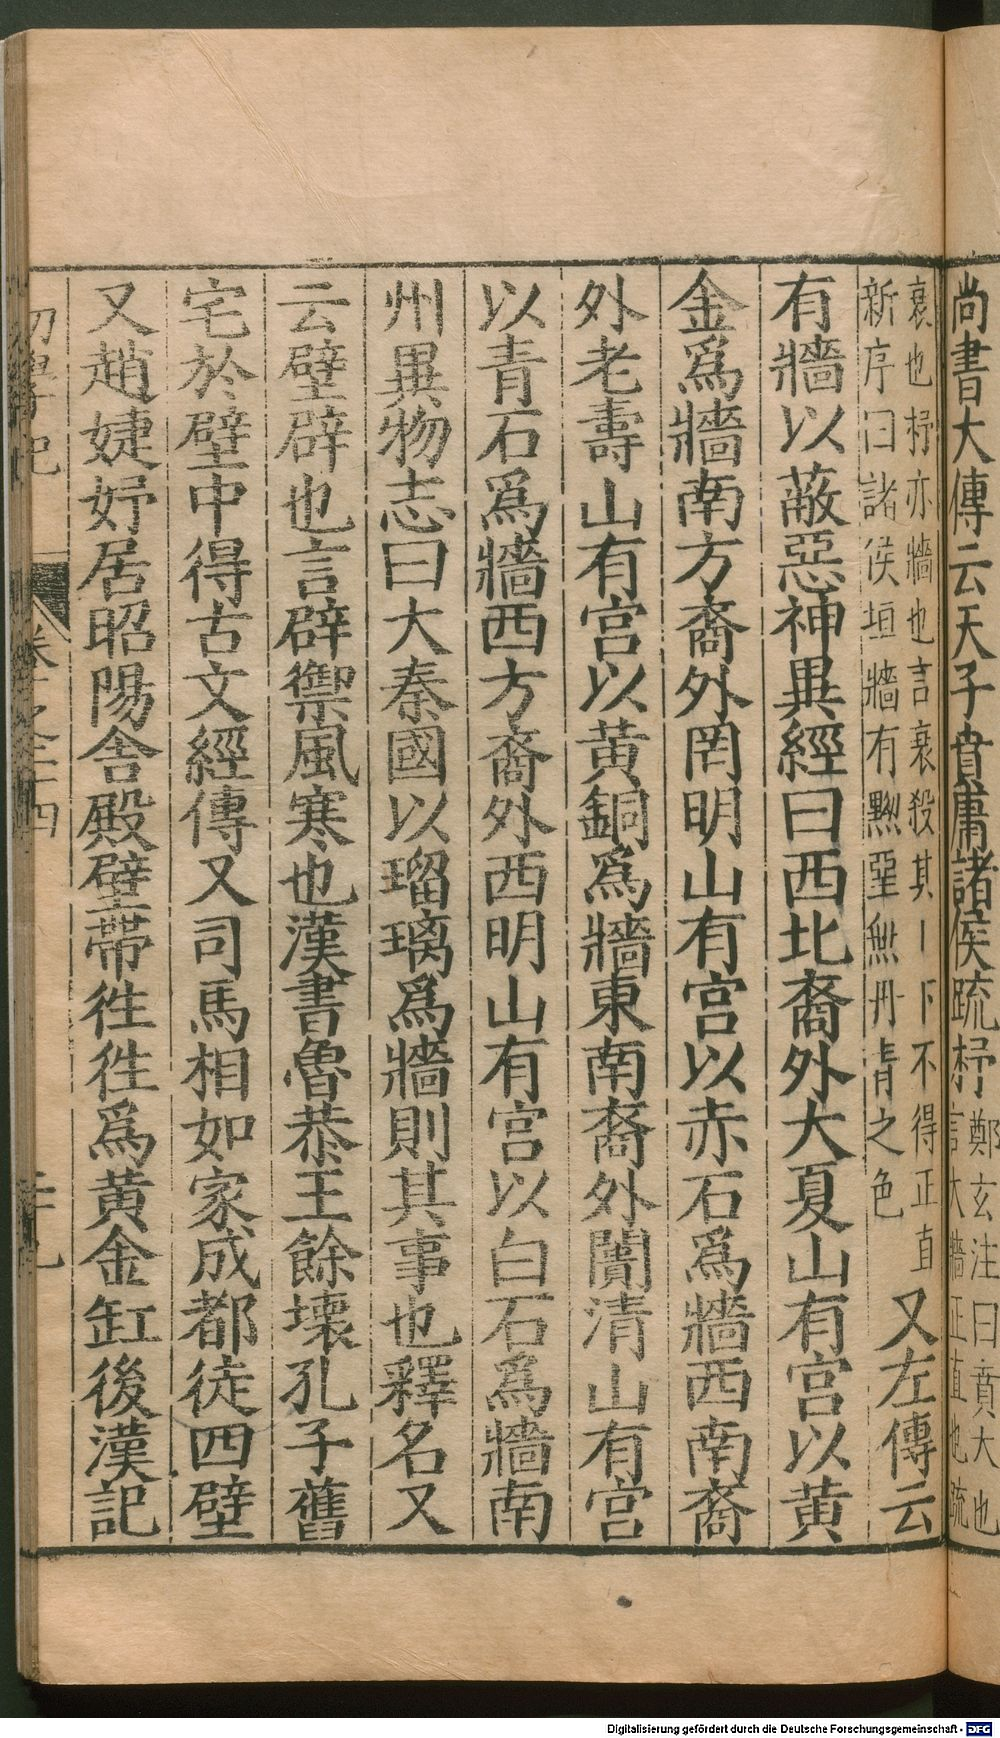 尚書大傳云天子賁庸諸侯疏杼鄭玄注曰賁大也言大牆正直也疏
衰也杼亦牆也言衰殺其丨下不得正直
新序曰諸侯垣牆有黝堊無丹青之色
又左傳云
有牆以蔽惡神異經曰西北裔外大夏山有宮以黃
金爲牆南方裔外罔明山有宮以赤石爲牆西南裔
外老壽山有宮以黃銅爲牆東南裔外闠清山有宮
以青石爲牆西方裔外西明山有宮以白石爲牆南
州異物志曰大秦國以瑠璃爲牆則其事也釋名又
云壁辟也言辟禦風寒也漢書魯恭王餘壞孔子舊
宅於壁中得古文經傳又司馬相如家成都徒四壁
又趙婕妤居昭陽舍殿壁帶徃徃爲黃金缸後漢記
初學記 卷之二十四
Digitalisierung gefördert durch die Deutsche Forschungsgemeinschaft - DFG